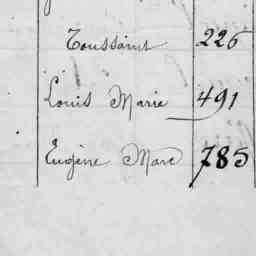 Toussaint 226
Louis Marie 491
Eugène Marc 785